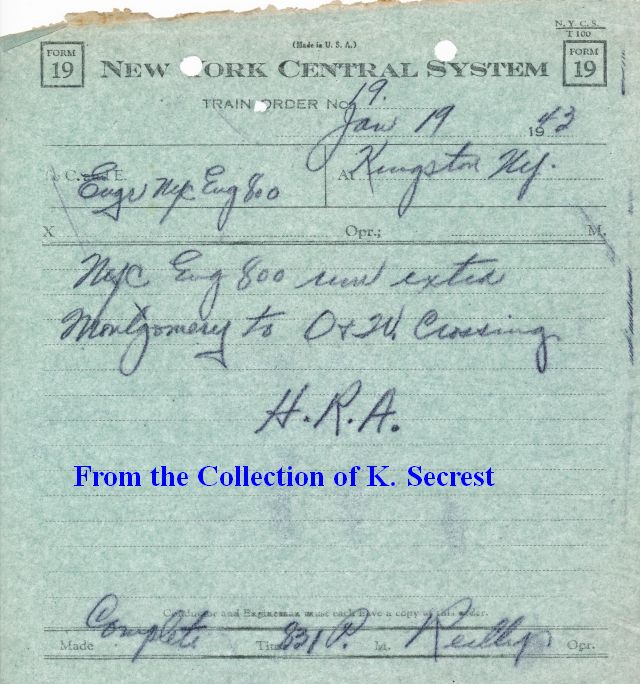 N. Y. C. S.
T 100
(Made in U. S. A.)
FORM 19 NEW YORK CENTRAL SYSTEM FORM 19
TRAIN ORDER No. 19.
Jan 19 1943
To C. and E. At Kingston Ny.
Engr Nyc Eng 800
X Opr.; M.
Nyc Eng 800 run extra
Montgomery to O & W. Crossing
H.R.A.
From the Collection of K. Secrest
Conductor and Engineman must each have a copy of this order.
Made Complete Time 831 P. M. Reilly Opr.